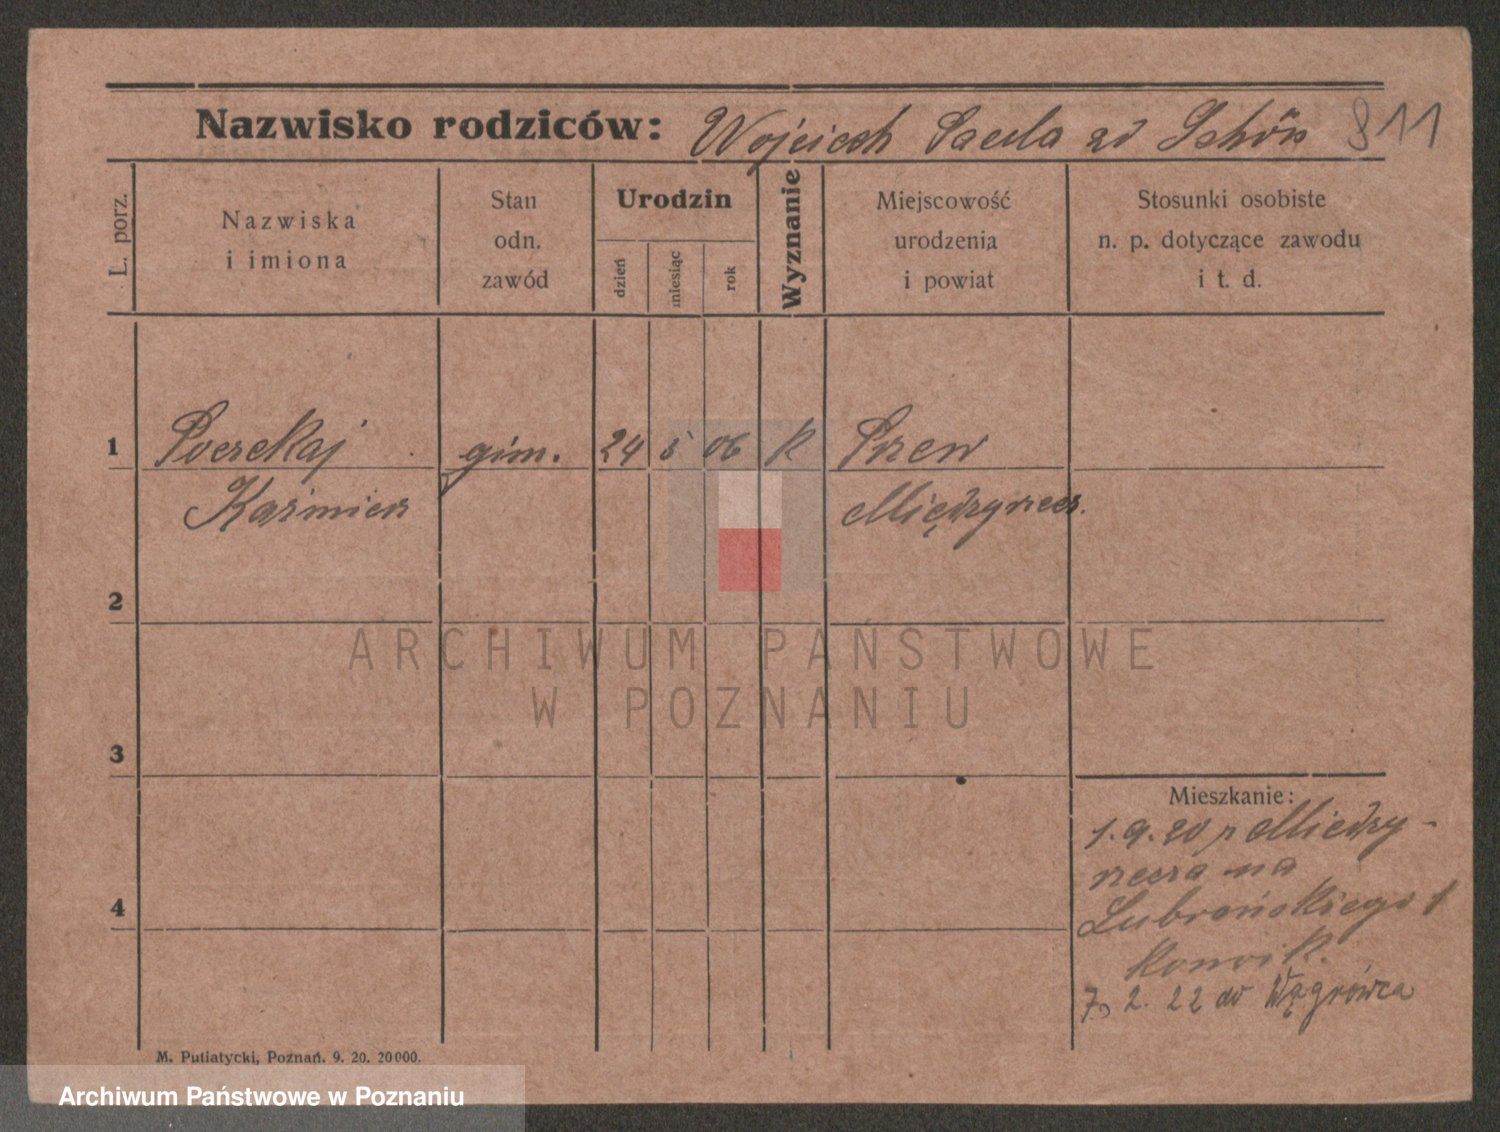 Nazwisko rodziców: Wojciech Paula zd Schön 811
L. porz.
Nazwiska
i imiona
Stan
odn.
zawód
Urodzin
dzień
miesiąc
rok
Wyznanie
Miejscowość
urodzenia
i powiat
Stosunki osobiste
n. p. dotyczące zawodu
i t. d.
1 gim. 24 5 06 k
Kaźmierz Międzyrzecz.
2
3
4
Mieszkanie:
1.9.20 z Między-
rzecza na
Lubrańskiego 1
konwik.
7. 2. 22 do Wągrówca
M. Putiatycki, Poznań. 9. 20. 20000.
ARCHIWUM PAŃSTWOWE
W POZNANIU
Archiwum Państwowe w Poznaniu